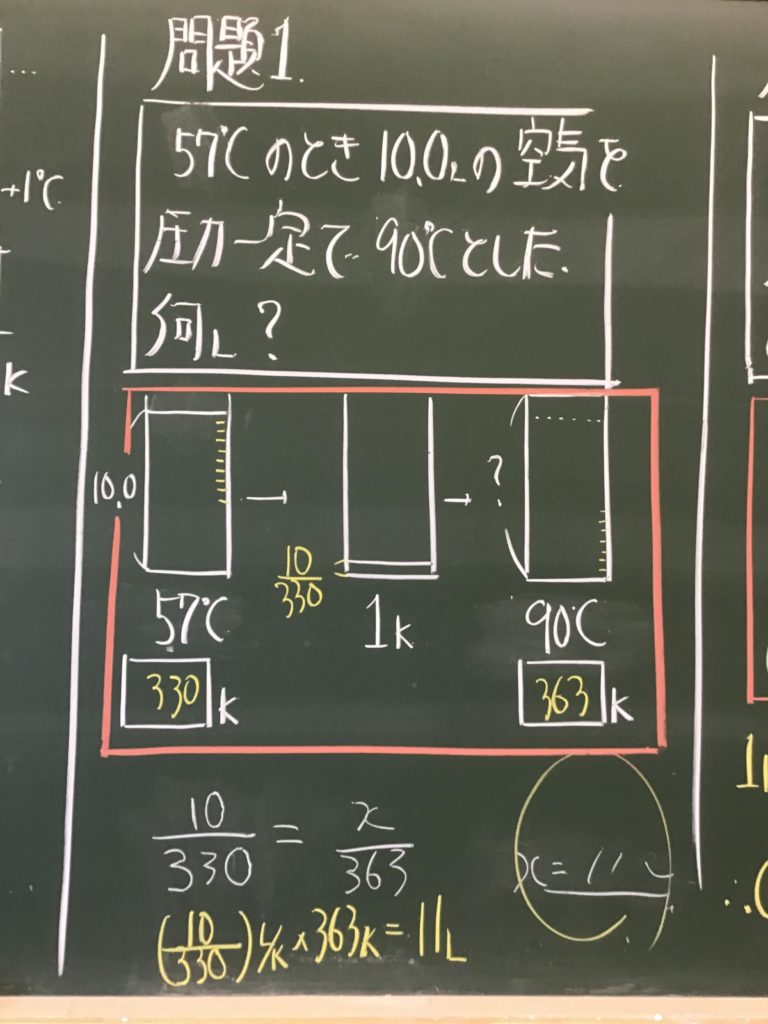 …
+1℃
K
問題1.
57℃のとき10.0Lの空気を
圧力一定で90℃とした.
何L?
10.0
→
→
?
10/330
57℃
1K
90℃
330 K
363 K
10/330 = x/363
x=11L
(10/330)L/K×363K=11L
∴